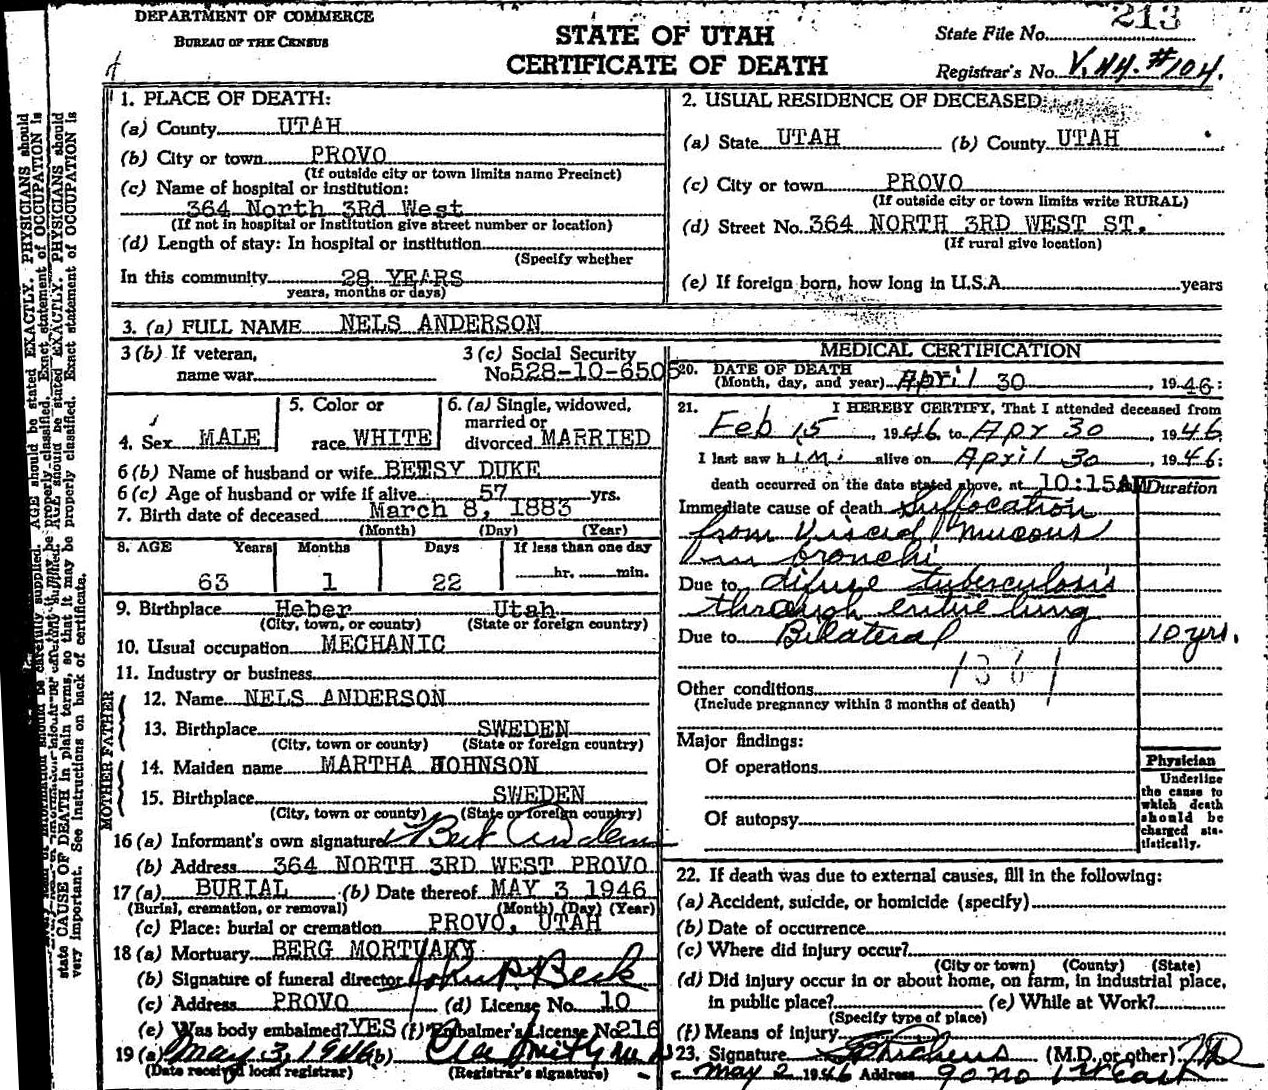 DEPARTMENT OF COMMERCE
BUREAU OF THE CENSUS
STATE OF UTAH
CERTIFICATE OF DEATH
213
State File No.
Registrar's No. V.44.#104.
1. PLACE OF DEATH:
(a) County UTAH
(b) City or town PROVO
(If outside city or town limits name Precinct)
(c) Name of hospital or institution:
364 North 3Rd West
(If not in hospital or institution give street number or location)
(d) Length of stay: In hospital or institution
(Specify whether
In this community 28 YEARS
years, months or days)
2. USUAL RESIDENCE OF DECEASED:
(a) State UTAH (b) County UTAH
(c) City or town PROVO
(If outside city or town limits write RURAL)
(d) Street No. 364 NORTH 3RD WEST ST.
(If rural give location)
(e) If foreign born, how long in U.S.A. years
3. (a) FULL NAME NELS ANDERSON
3 (b) If veteran,
name war
3 (c) Social Security
No. 528-10-6505
4. Sex MALE
5. Color or
race WHITE
6. (a) Single, widowed,
married or
divorced MARRIED
6 (b) Name of husband or wife BETSY DUKE
6 (c) Age of husband or wife if alive 57 yrs.
7. Birth date of deceased March 8, 1883
(Month) (Day) (Year)
8. AGE Years Months Days If less than one day
63 1 22 hr. min.
9. Birthplace Heber Utah
(City, town, or county) (State or foreign country)
10. Usual occupation MECHANIC
11. Industry or business
FATHER
12. Name NELS ANDERSON
13. Birthplace SWEDEN
(City, town or county) (State or foreign country)
MOTHER
14. Maiden name MARTHA JOHNSON
15. Birthplace SWEDEN
(City, town or county) (State or foreign country)
16 (a) Informant's own signature Bert Anderson
(b) Address 364 NORTH 3RD WEST PROVO
17 (a) BURIAL (b) Date thereof MAY 3 1946
(Burial, cremation, or removal) (Month) (Day) (Year)
(c) Place: burial or cremation PROVO, UTAH
18 (a) Mortuary BERG MORTUARY
(b) Signature of funeral director
(c) Address PROVO (d) License No. 10
(e) Was body embalmed? YES (f) Embalmer's License No. 216
19 (a) May 3, 1946 (b)
(Date received local registrar) (Registrar's signature)
MEDICAL CERTIFICATION
20. DATE OF DEATH
(Month, day, and year) April 30, 1946:
21. I HEREBY CERTIFY, That I attended deceased from
Feb 15, 1946 to Apr 30, 1946
I last saw him alive on April 30, 1946:
death occurred on the date stated above, at 10:15AM Duration
Immediate cause of death Suffocation
from Viscid Mucous
in bronchi
Due to difuse tuberculosis
through entire lung
Due to Bilateral 10 yrs.
Other conditions
(Include pregnancy within 3 months of death)
Major findings:
Of operations
Of autopsy
Physician
Underline
the cause to
which death
should be
charged sta-
tistically.
22. If death was due to external causes, fill in the following:
(a) Accident, suicide, or homicide (specify)
(b) Date of occurrence
(c) Where did injury occur?
(City or town) (County) (State)
(d) Did injury occur in or about home, on farm, in industrial place,
in public place? (e) While at Work?
(Specify type of place)
(f) Means of injury
23. Signature (M.D. or other) MD
May 2 1946 Address 90 no 1st East
AGE should be stated EXACTLY. PHYSICIANS should
state CAUSE OF DEATH in plain terms, so that it may be properly classified. Exact statement of OCCUPATION is
very important. See instructions on back of certificate.